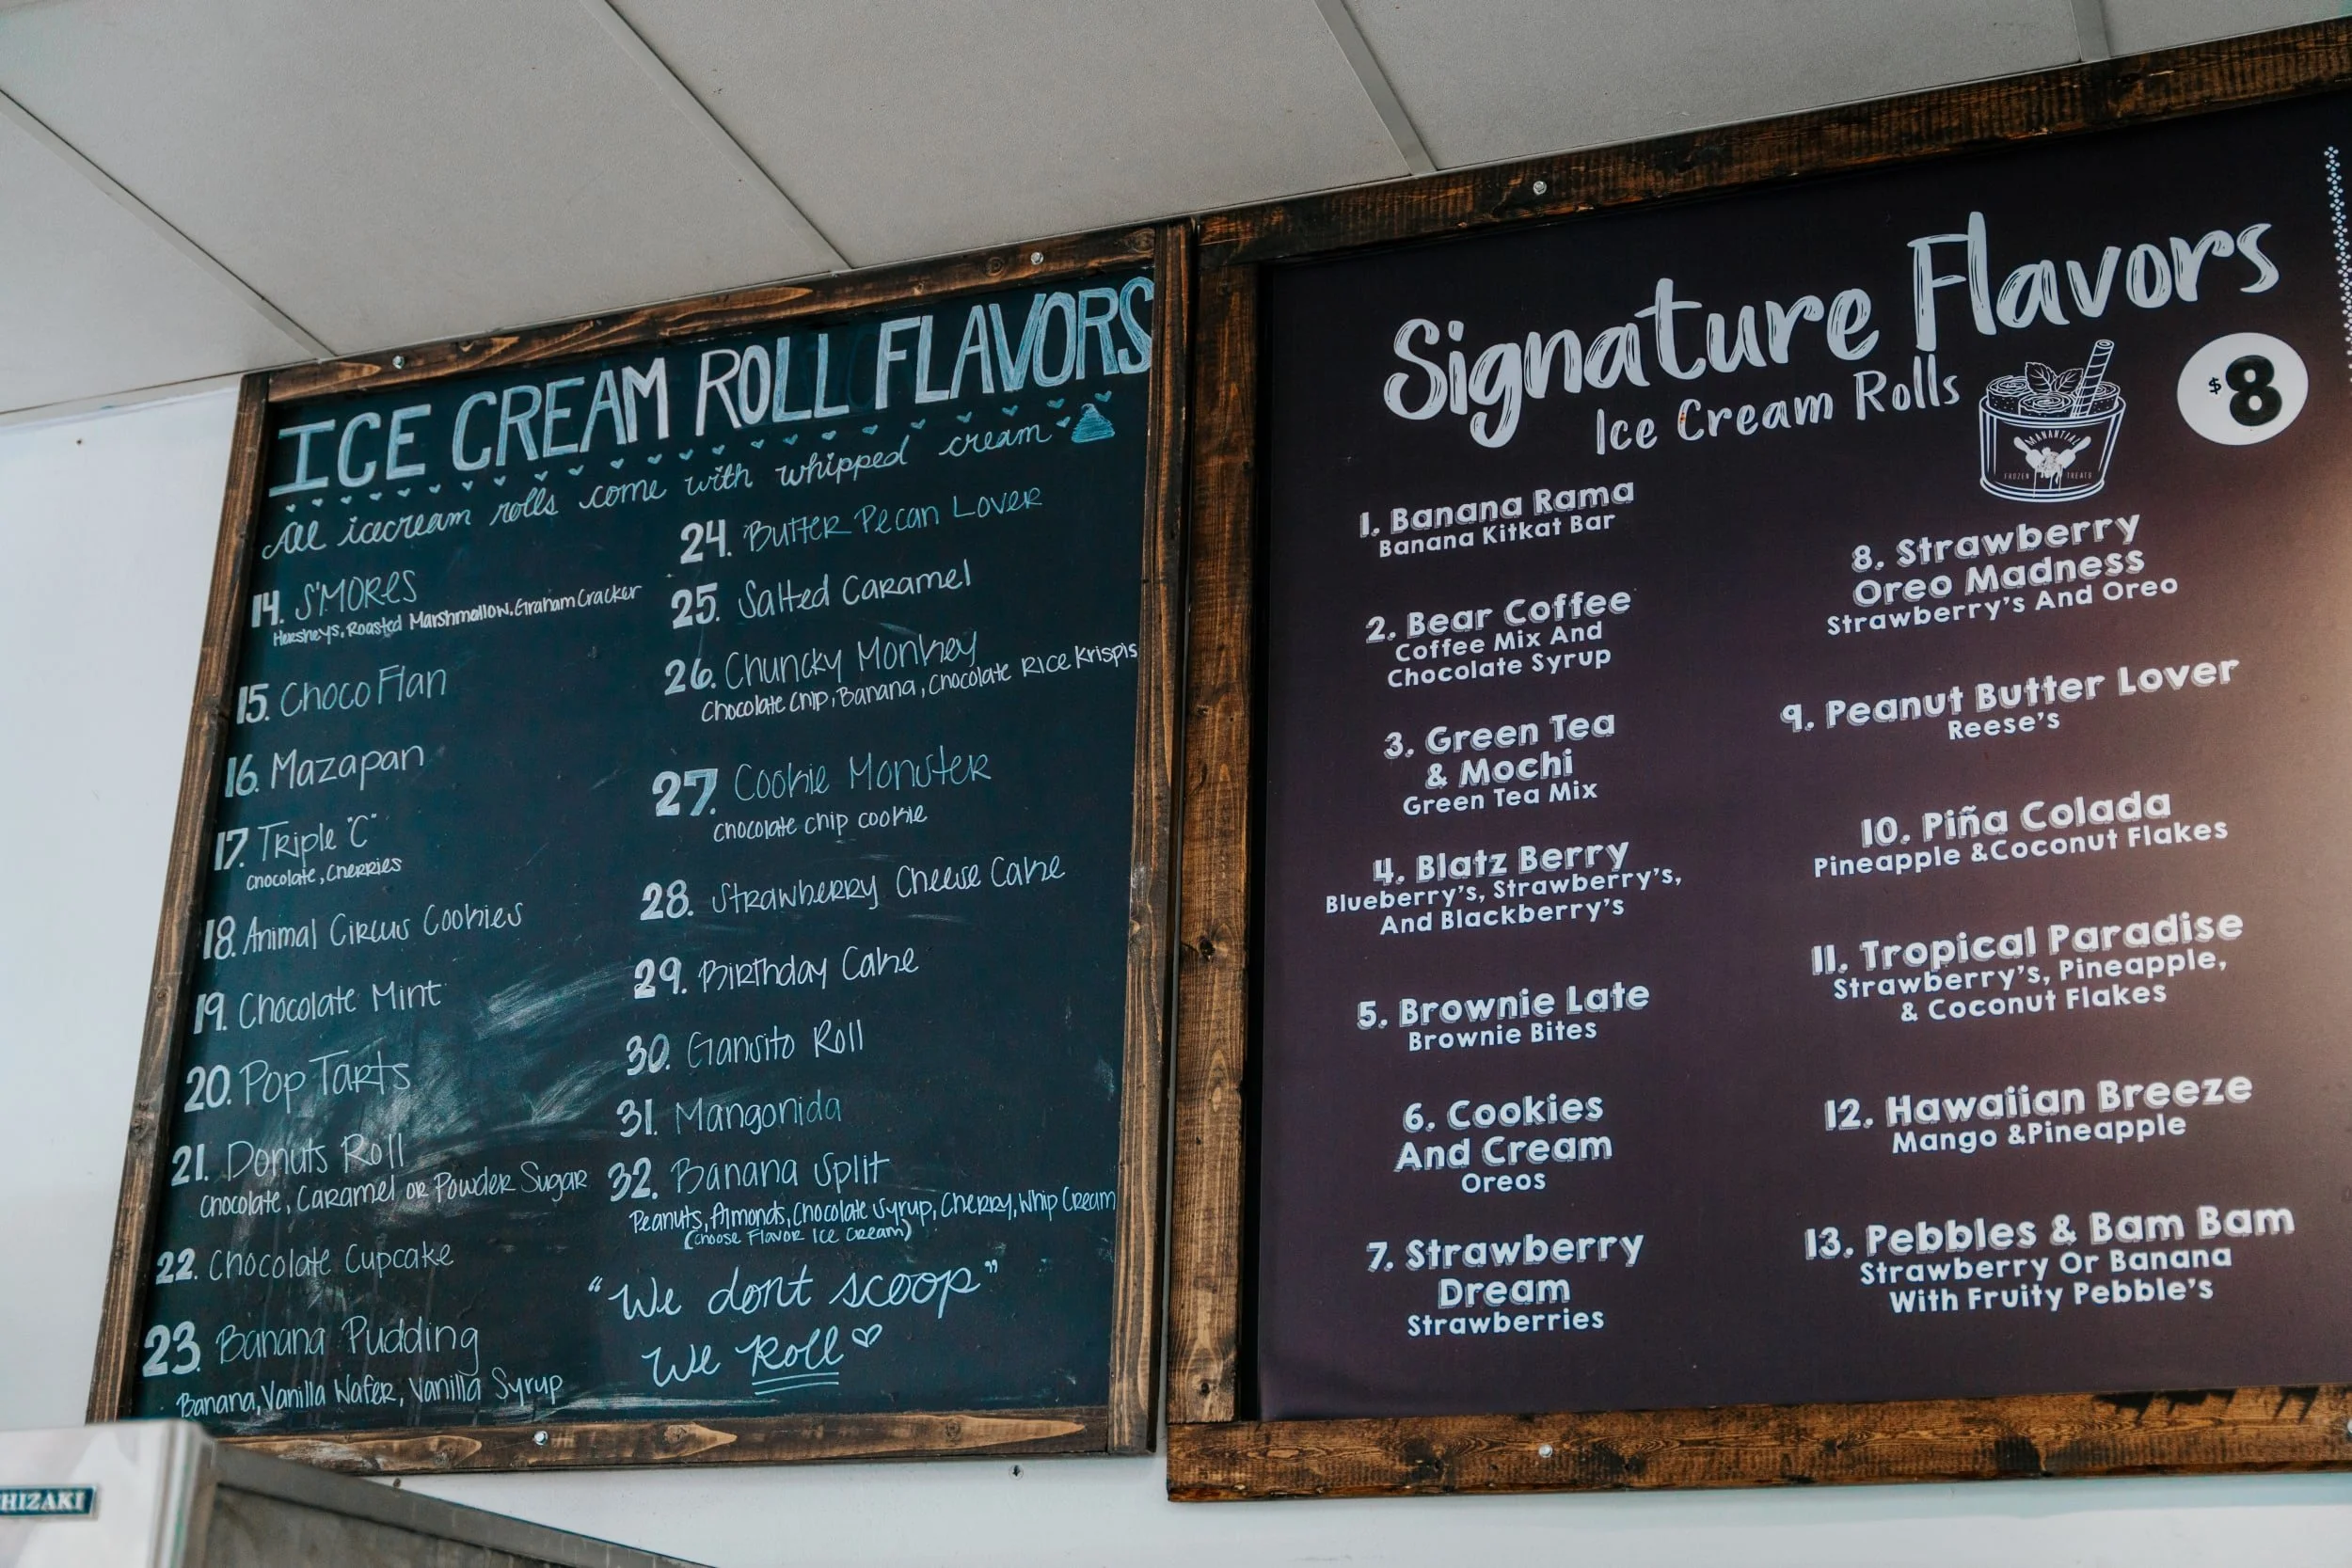 ICE CREAM ROLL FLAVORS
All icecream rolls come with whipped cream
14. S'MORES
Hersheys, Roasted Marshmallow, Graham Cracker
15. Choco Flan
16. Mazapan
17. Triple "C"
Chocolate, Cherries
18. Animal Circus Cookies
19. Chocolate Mint
20. Pop Tarts
21. Donuts Roll
Chocolate, Caramel or Powder Sugar
22. Chocolate Cupcake
23. Banana Pudding
Banana, Vanilla Wafer, Vanilla Syrup
24. Butter Pecan Lover
25. Salted Caramel
26. Chuncky Monkey
Chocolate Chip, Banana, Chocolate Rice Krispis
27. Cookie Monster
Chocolate chip cookie
28. Strawberry Cheese Cake
29. Birthday Cake
30. Gansito Roll
31. Mangonida
32. Banana Split
Peanuts, Almonds, Chocolate Syrup, Cherry, Whip Cream
(Choose Flavor Ice Cream)
"We dont scoop"
We Roll
Signature Flavors
Ice Cream Rolls
$8
MANANTIAL
FROZEN TREATS
1. Banana Rama
Banana Kitkat Bar
2. Bear Coffee
Coffee Mix And
Chocolate Syrup
3. Green Tea
& Mochi
Green Tea Mix
4. Blatz Berry
Blueberry's, Strawberry's,
And Blackberry's
5. Brownie Late
Brownie Bites
6. Cookies
And Cream
Oreos
7. Strawberry
Dream
Strawberries
8. Strawberry
Oreo Madness
Strawberry's And Oreo
9. Peanut Butter Lover
Reese's
10. Piña Colada
Pineapple &Coconut Flakes
11. Tropical Paradise
Strawberry's, Pineapple,
& Coconut Flakes
12. Hawaiian Breeze
Mango &Pineapple
13. Pebbles & Bam Bam
Strawberry Or Banana
With Fruity Pebble's
HIZAKI